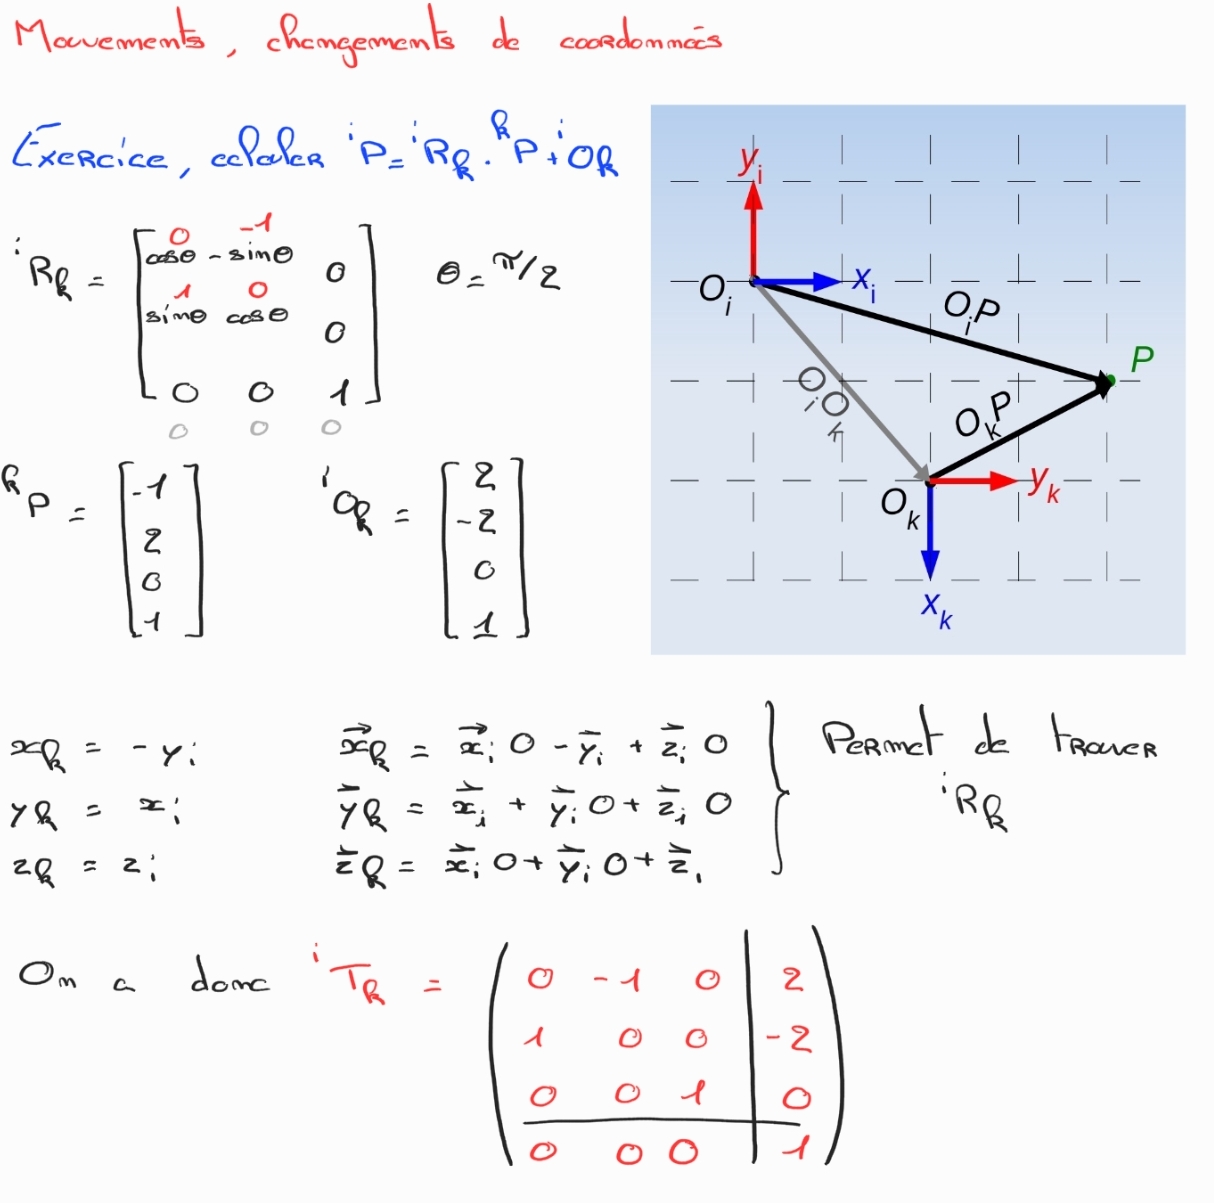 Mouvements, changements de coordonnées
Exercice, calculer ⁱP = ⁱRₖ . ᵏP + ⁱOₖ
0 -1
cosθ - sinθ 0
ⁱRₖ = θ = π/2
1 0
sinθ cosθ 0
0 0 1
0 0 0
ᵏP = [-1 2 0 1] ⁱOₖ = [2 -2 0 1]
yᵢ
Oᵢ xᵢ
OᵢP
P
OᵢOₖ
OₖP
Oₖ yₖ
xₖ
xₖ = - yᵢ x⃗ₖ = x⃗ᵢ 0 - y⃗ᵢ + z⃗ᵢ 0
yₖ = xᵢ y⃗ₖ = x⃗ᵢ + y⃗ᵢ 0 + z⃗ᵢ 0
zₖ = zᵢ z⃗ₖ = x⃗ᵢ 0 + y⃗ᵢ 0 + z⃗ᵢ
Permet de trouver
ⁱRₖ
On a donc ⁱTₖ =
0 -1 0 2
1 0 0 -2
0 0 1 0
0 0 0 1